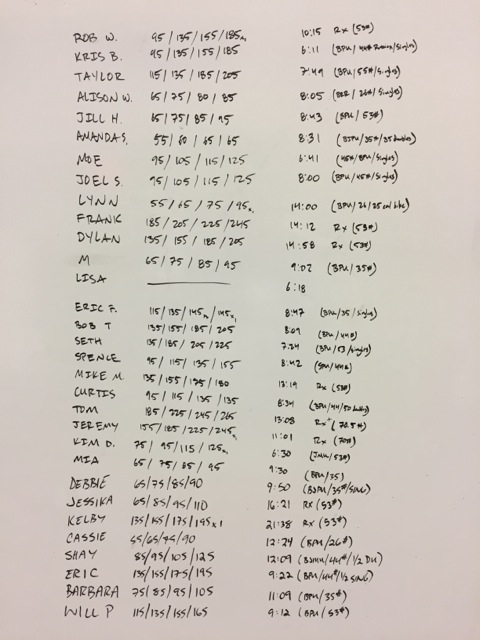 ROB W. 95/135/155/185x1 10:15 Rx (53#)
KRIS B. 95/135/155/185 6:11 (BPU/44# /Singles)
TAYLOR 115/135/185/205 7:49 (BPU/55#/Singles)
ALISON W. 65/75/80/85 8:05 (/26#/Singles)
JILL H. 65/75/85/95 8:43 (BPU/53#)
AMANDA S. 55/60/65/65 8:31 (/35#/35 doubles)
MOE 95/105/115/125 6:41 (45#/BPU/Singles)
JOEL S. 95/105/115/125 8:00 (BPU/45#/Singles)
LYNN 55/65/75/95x1 14:00 (BPU/26/25 cal bike)
FRANK 185/205/225/245 14:12 Rx (53#)
DYLAN 135/155/185/205 14:58 Rx (53#)
M 65/75/85/95 9:02 (BPU/35#)
LISA 6:18
ERIC F. 115/135/145x1/145x1 8:47 (BPU/35/Singles)
BOB T 135/155/185/205 8:09 (BPU/44#)
SETH 135/185/205/225 7:34 (BPU/53/Singles)
SPENCE 95/115/135/155 8:42 (/44#)
MIKE M. 135/155/175/180 13:19 Rx (53#)
CURTIS 95/115/135/135 8:34 (BPU/44/50 doubles)
TOM 185/225/245/265 13:08 Rx+ (70.5#)
JEREMY 155/185/225/245x1 11:01 Rx (70#)
KIM D. 75/95/115/125x1 6:30 (/53#)
MIA 65/75/85/95 9:30 (BPU/35)
DEBBIE 65/75/85/90 9:50 (/35#/SING)
JESSIKA 65/85/95/110 16:21 Rx (53#)
KELBY 135/165/175/195x1 21:38 Rx (53#)
CASSIE 55/65/75/90 12:24 (BPU/26#)
SHAY 85/95/105/125 12:09 (/44#/1/2 DU)
ERIC 135/155/175/195 9:22 (BPU/44#/1/2 SING)
BARBARA 75/85/95/105 11:09 (BPU/35#)
WILL P 115/135/155/165 9:12 (BPU/53#)